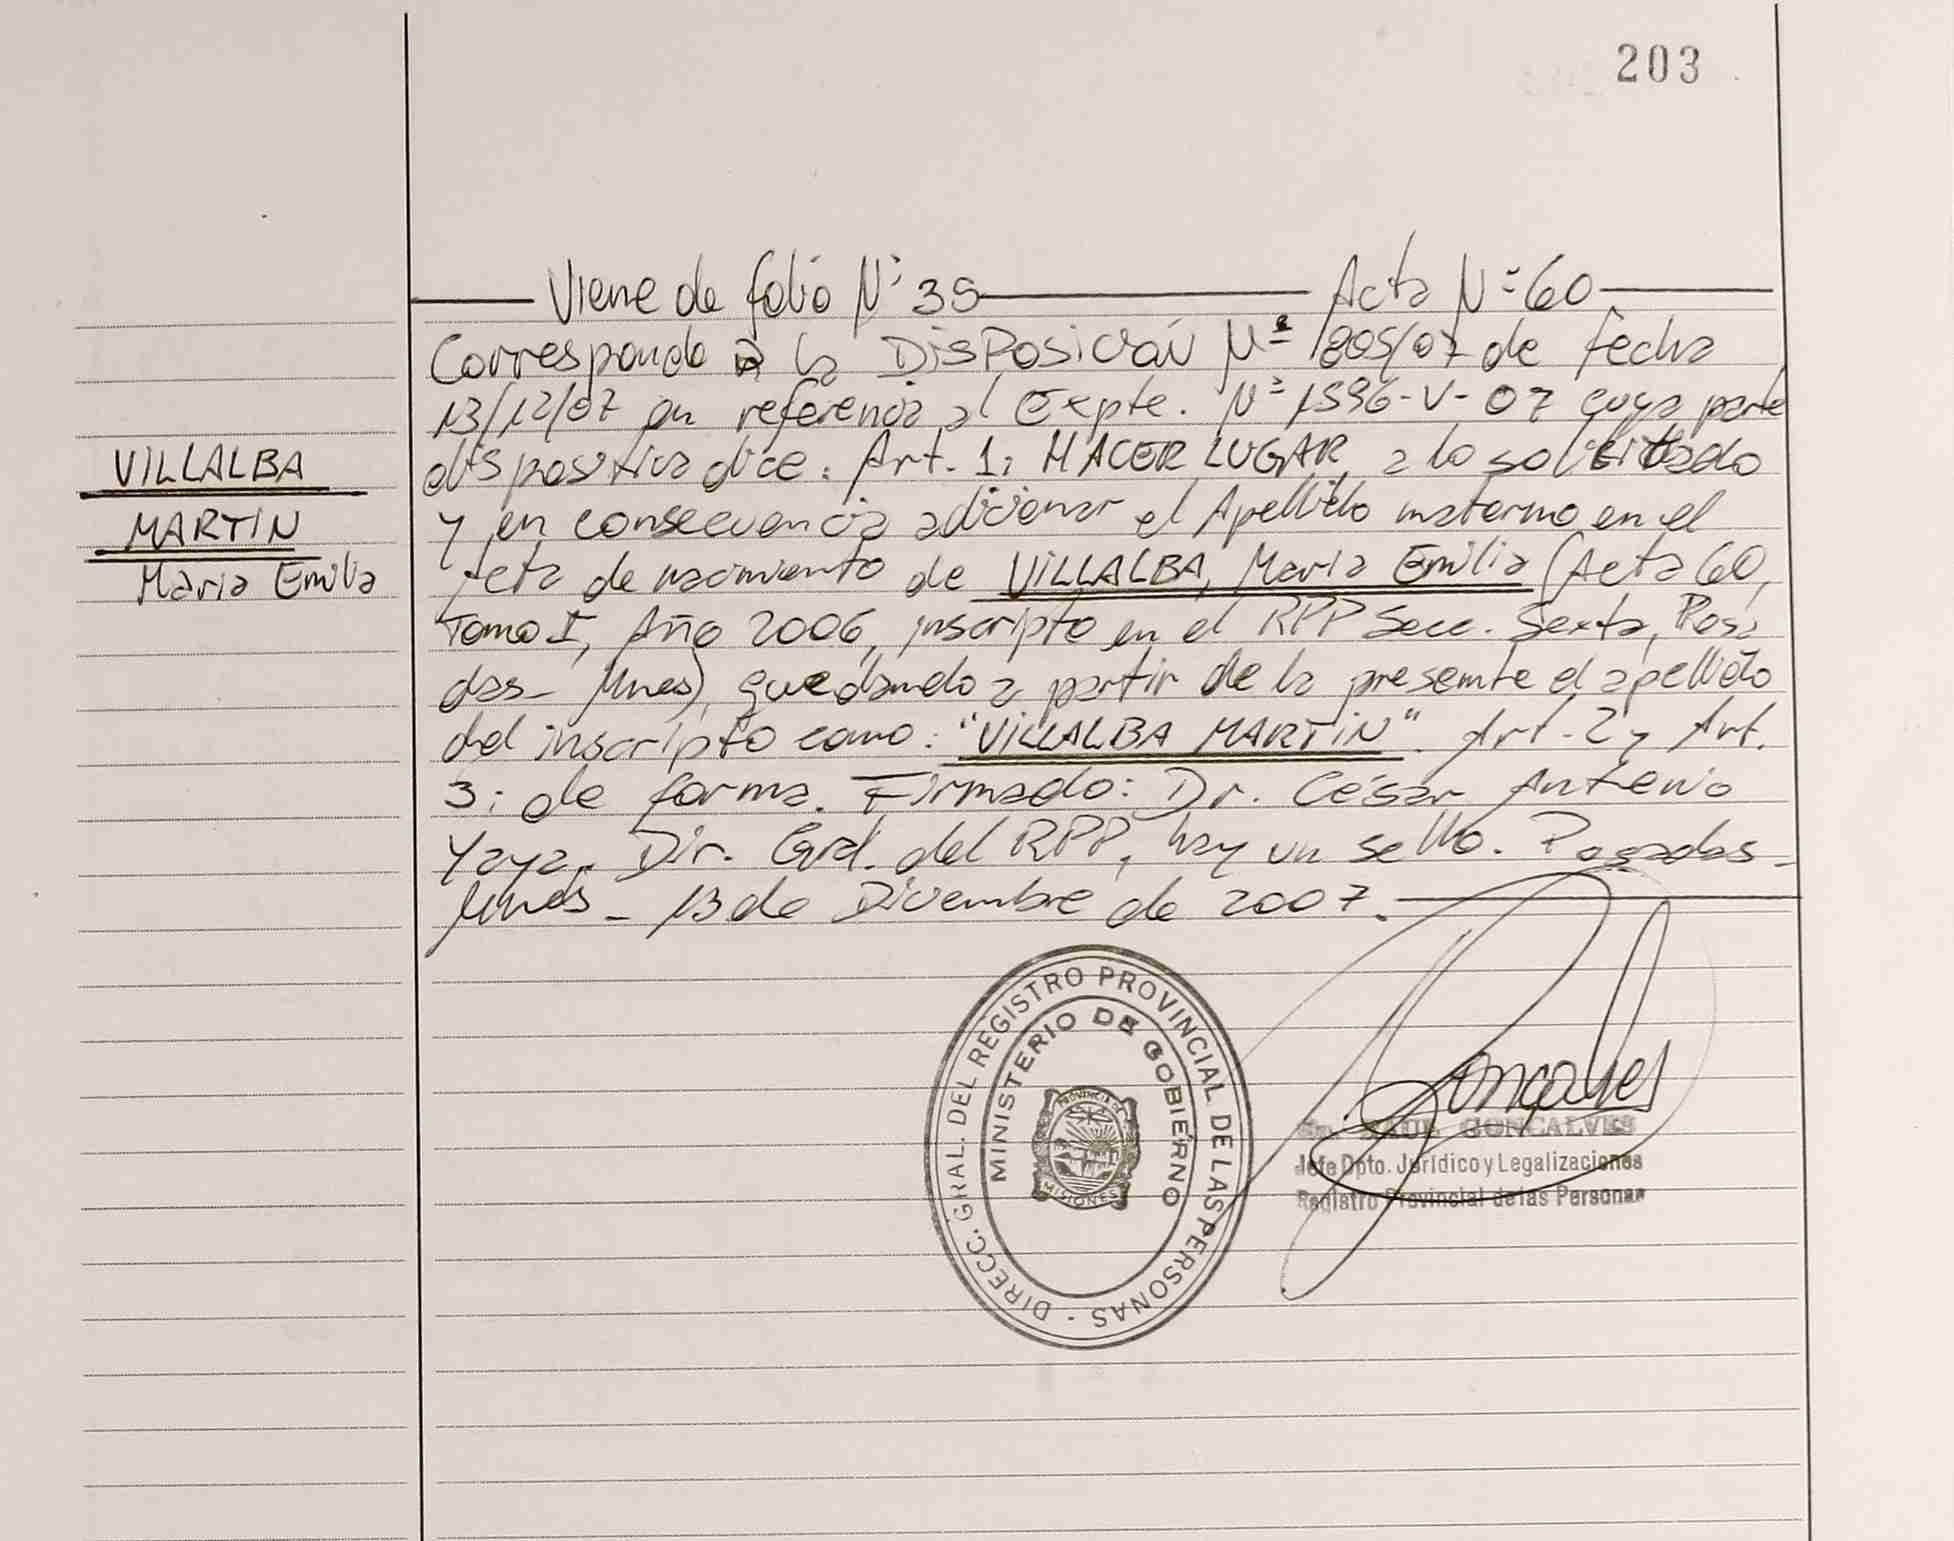 203
Viene de folio Nº 39 Acta Nº 60
Corresponde a la Disposición Nº 1805/07 de fecha
13/12/07 en referencia al Expte. Nº 1596-V-07 cuya parte
dispositiva dice: Art. 1: HACER LUGAR, a lo solicitado
y en consecuencia adicionar el Apellido materno en el
Acta de nacimiento de VILLALBA, Maria Emilia (Acta 60,
Tomo I, Año 2006, inscripto en el RPP Secc. Sexta, Posa
das - Mnes), quedando a partir de la presente el apellido
del inscripto como: "VILLALBA MARTIN". Art. 2 y Art.
3: de forma. Firmado: Dr. César Antonio
Yaya. Dir. Gral. del RPP, hay un sello. Posadas -
Mnes - 13 de Diciembre de 2007.
VILLALBA
MARTIN
Maria Emilia
DIRECC. GRAL. DEL REGISTRO PROVINCIAL DE LAS PERSONAS -
MINISTERIO DE GOBIERNO
PROVINCIA DE
MISIONES
Gonçalves
Sr. RAUL GONCALVES
Jefe Dpto. Jurídico y Legalizaciones
Registro Provincial de las Personas